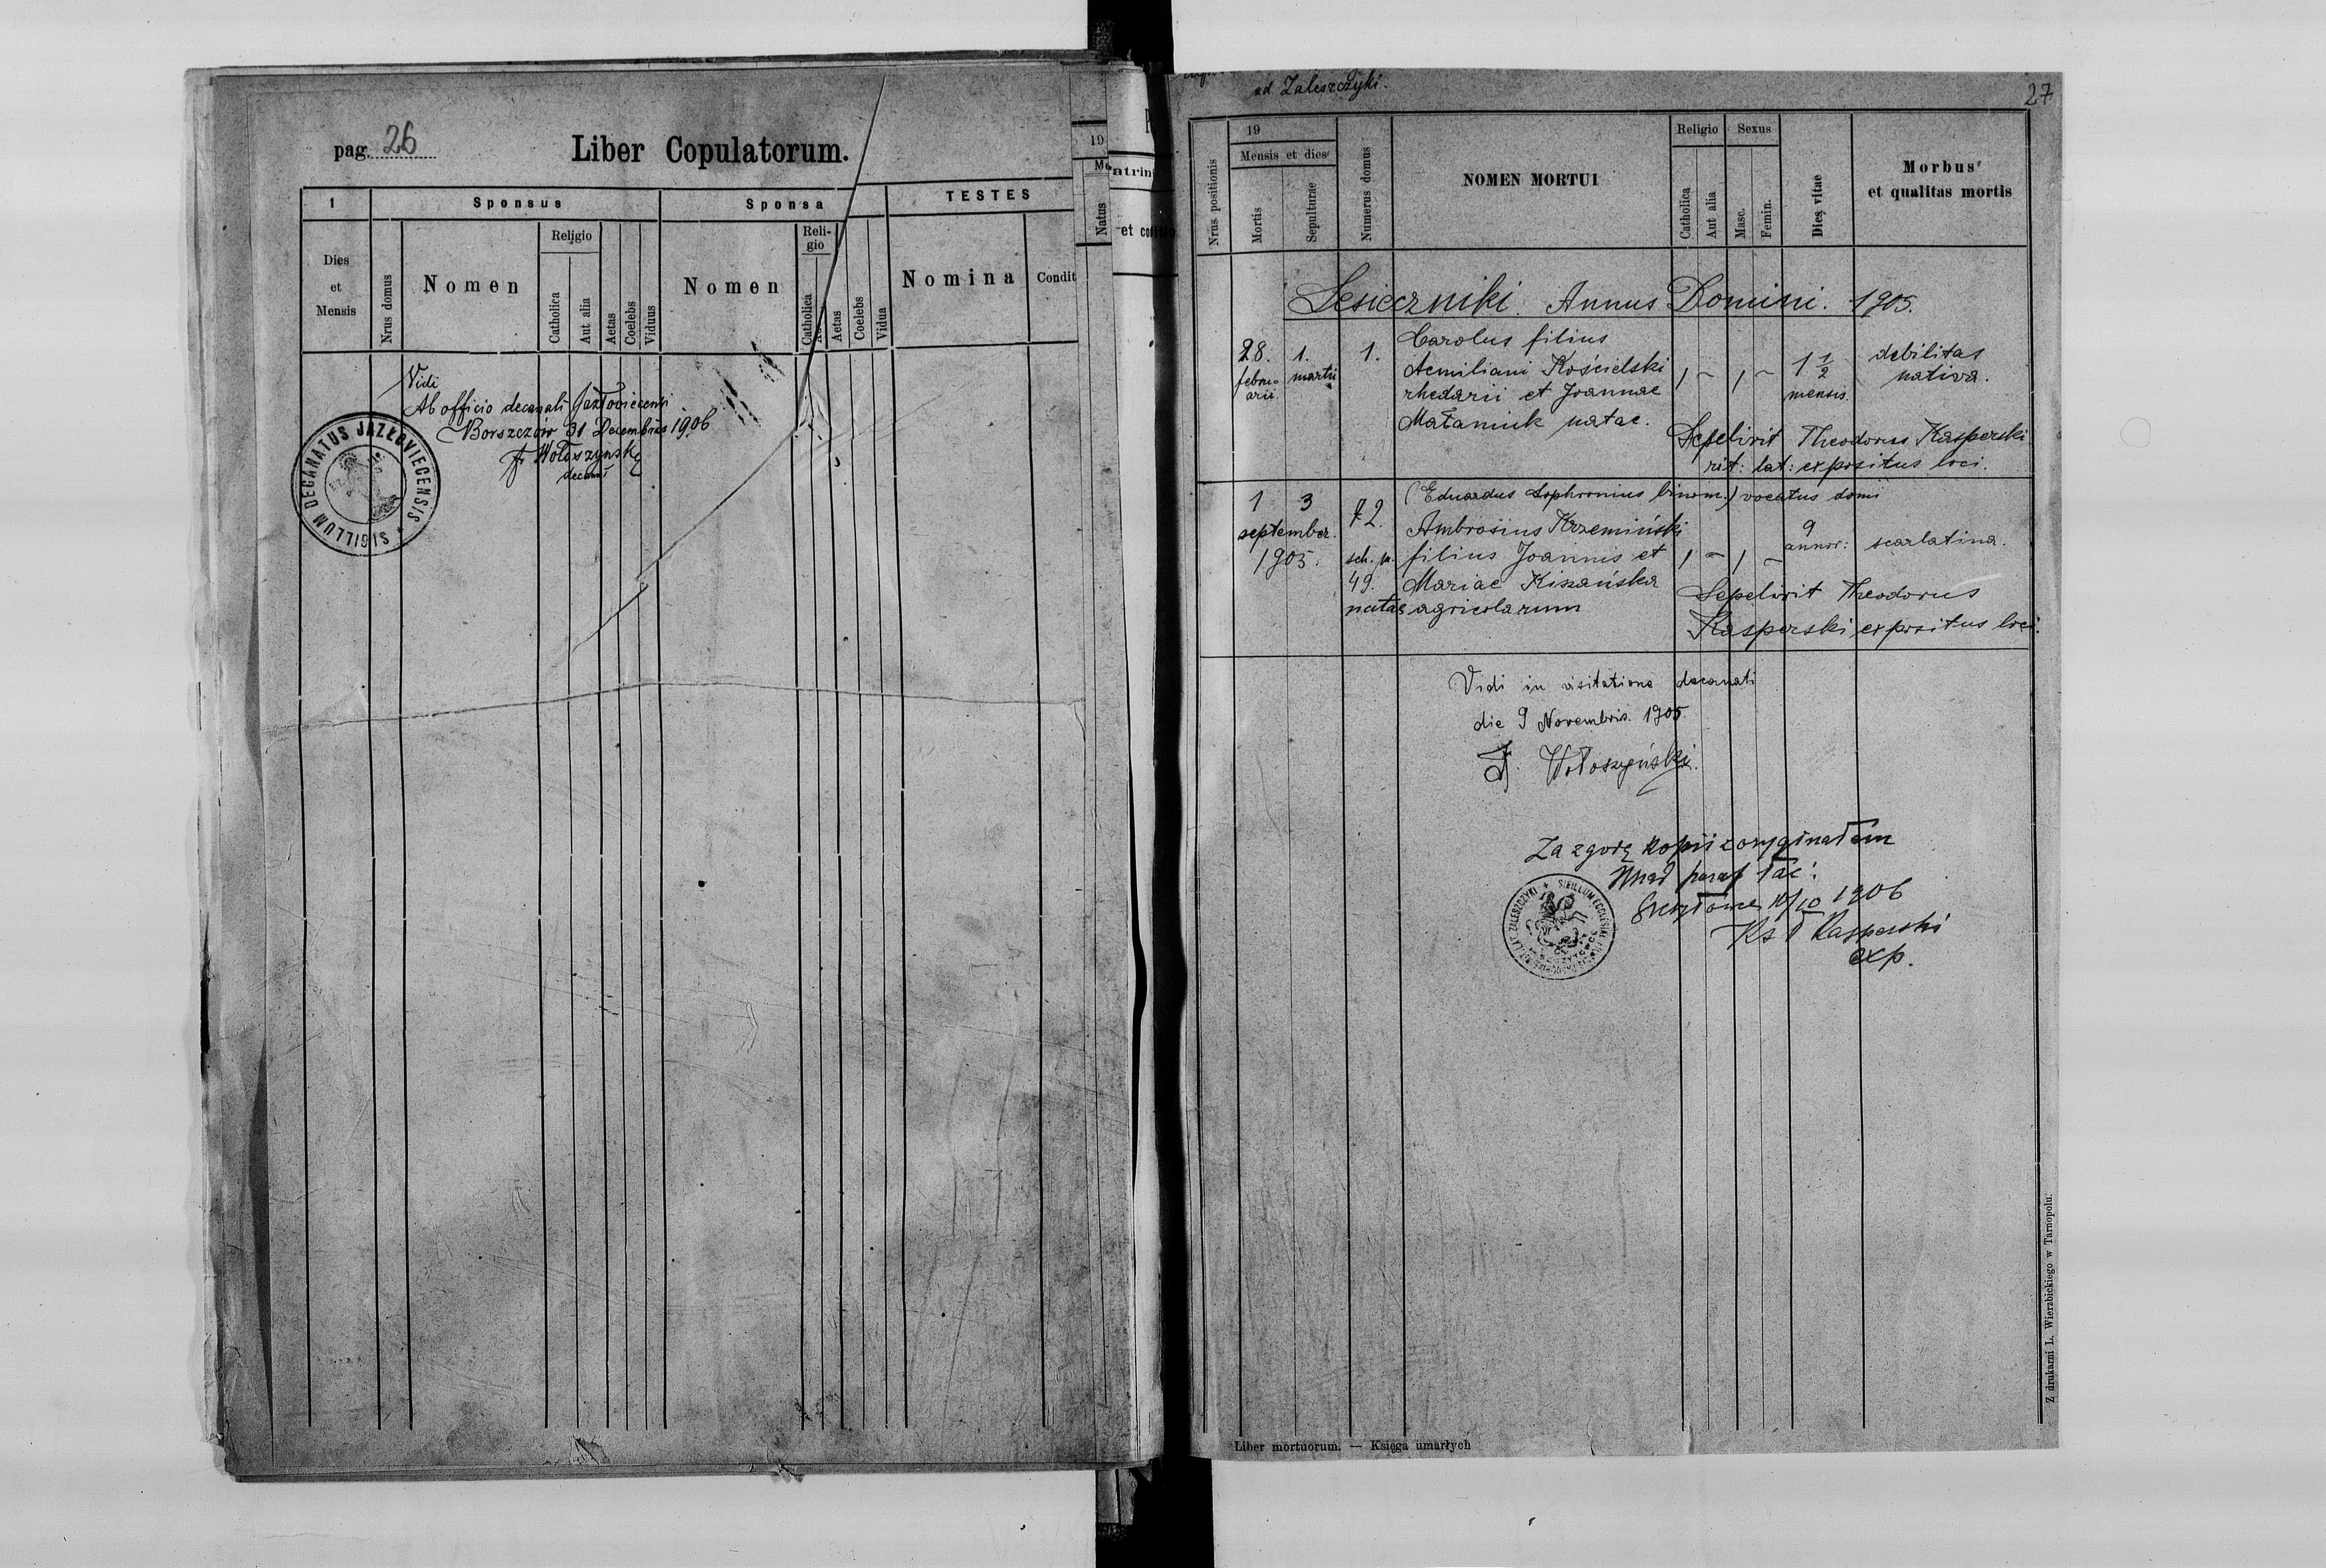 pag. 26
Liber Copulatorum.
1
Sponsus
Sponsa
TESTES
Dies
et
Mensis
Nrus domus
Nomen
Religio
Catholica
Aut alia
Aetas
Coelebs
Viduus
Nomen
Reli-
gio
Catholica
Aetas
Coelebs
Vidua
Nomina
Condit
Vidi
Ab officio decanali Jazłoviecensi
Borszczów 31 Decembris 1906
F Wołoszyński
decan
SIGILLUM DECANATUS JAZŁOVIECENSIS
19
Natus
atrini
et co
ad Zaleszczyki.
27
Nrus positionis
19
Mensis et dies
Mortis
Sepulturae
Numerus domus
NOMEN MORTUI
Religio
Catholica
Aut alia
Sexus
Masc.
Femin.
Dies vitae
Morbus
et qualitas mortis
Lesieczniki. Annus Domini. 1905.
28.
febru-
arii.
1.
martii
1.
Carolus filius
Aemiliani Kościelski
rhedarii et Joannae
Matamiuk natae.
1 - 1 -
1 1/2
mensis.
debilitas
nativa.
Sepelivit Theodorus Kasperski
rit: lat: expositus loci.
1 3
september.
1905.
72.
sch. p.
49.
(Eduardus Sophronius binom.) vocatus domi
Ambrosius Krzemiński
filius Joannis et
Mariae Kiszańska
natae agricolarum
1 - 1 -
9
annor:
scarlatina.
Sepelivit Theodorus
Kasperski expositus loci.
Vidi in visitatione decanati
die 9 Novembris. 1905.
F. Wołoszyński.
Za zgodę kopii z oryginałem
Urząd paraf łac:
10/10 1906
Ks T Kasperski
exp.
Liber mortuorum. — Księga umarłych
Z drukarni L. Wierzbickiego w Tarnopolu.